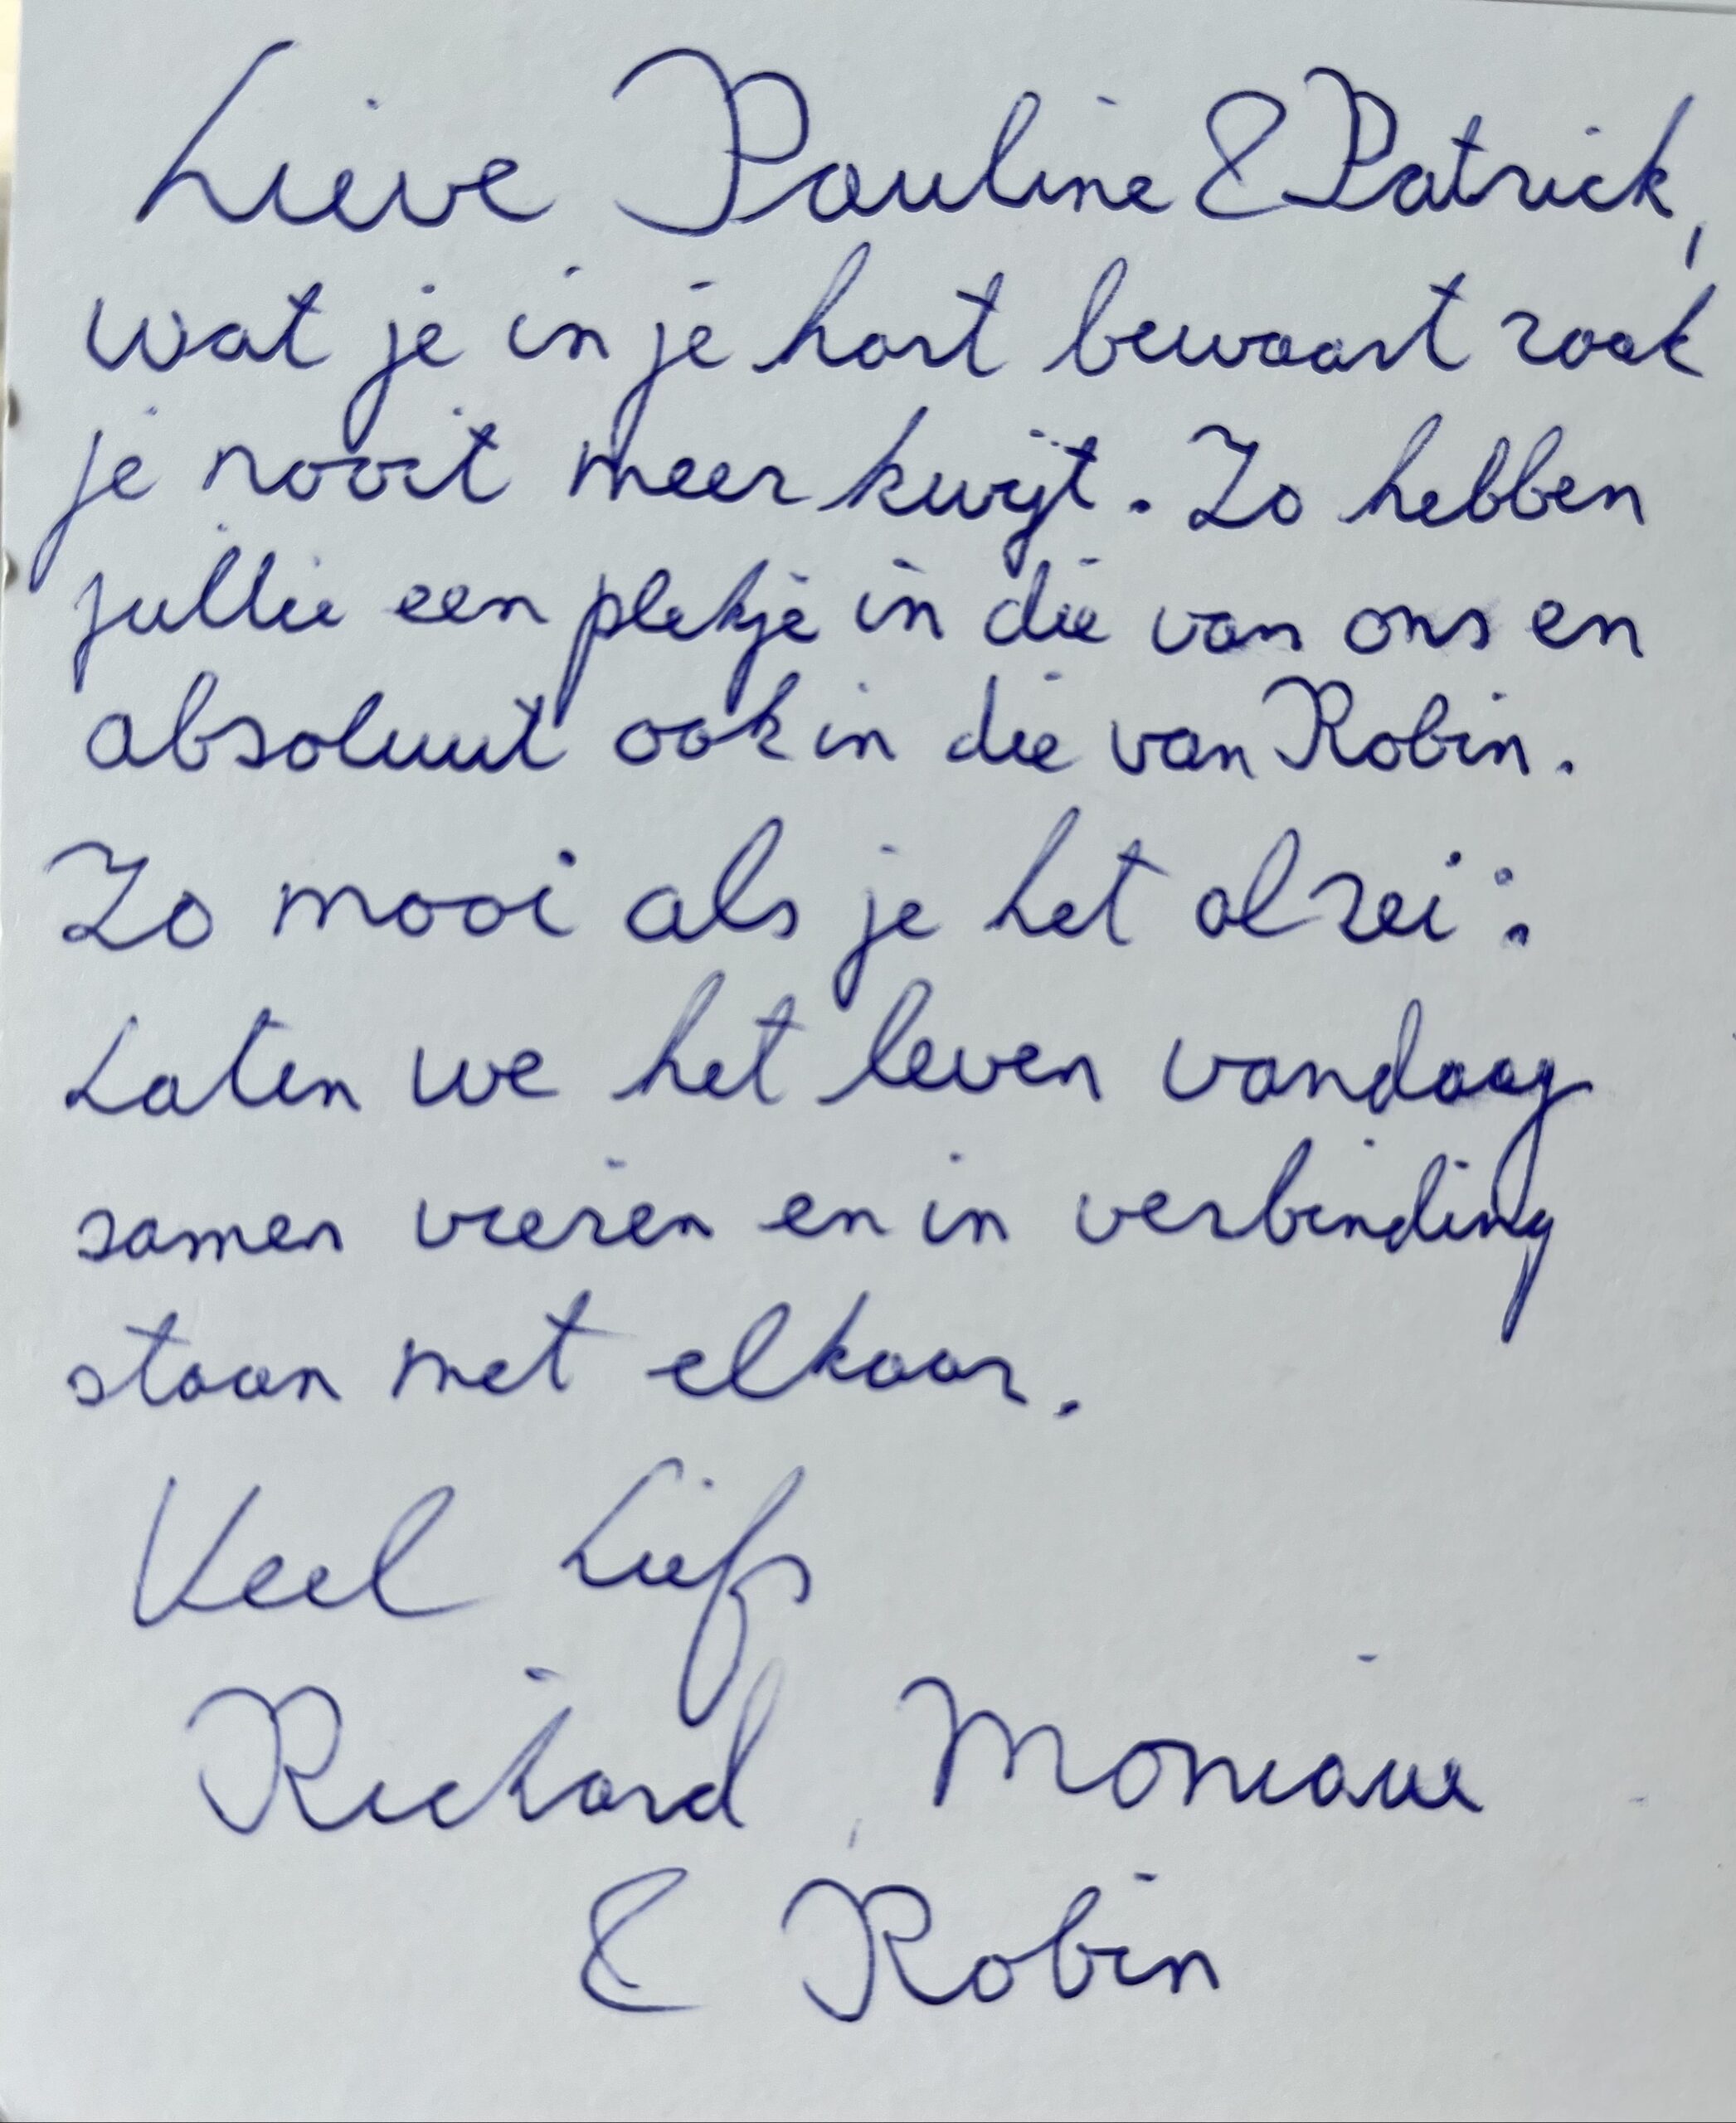 Lieve Pauline & Patrick,
wat je in je hart bewaart raak
je nooit meer kwijt. Zo hebben
jullie een plekje in die van ons en
absoluut ook in die van Robin.
Zo mooi als je het al zei:
Laten we het leven vandaag
samen vieren en in verbinding
staan met elkaar.
Veel Liefs
Richard, Monique
& Robin